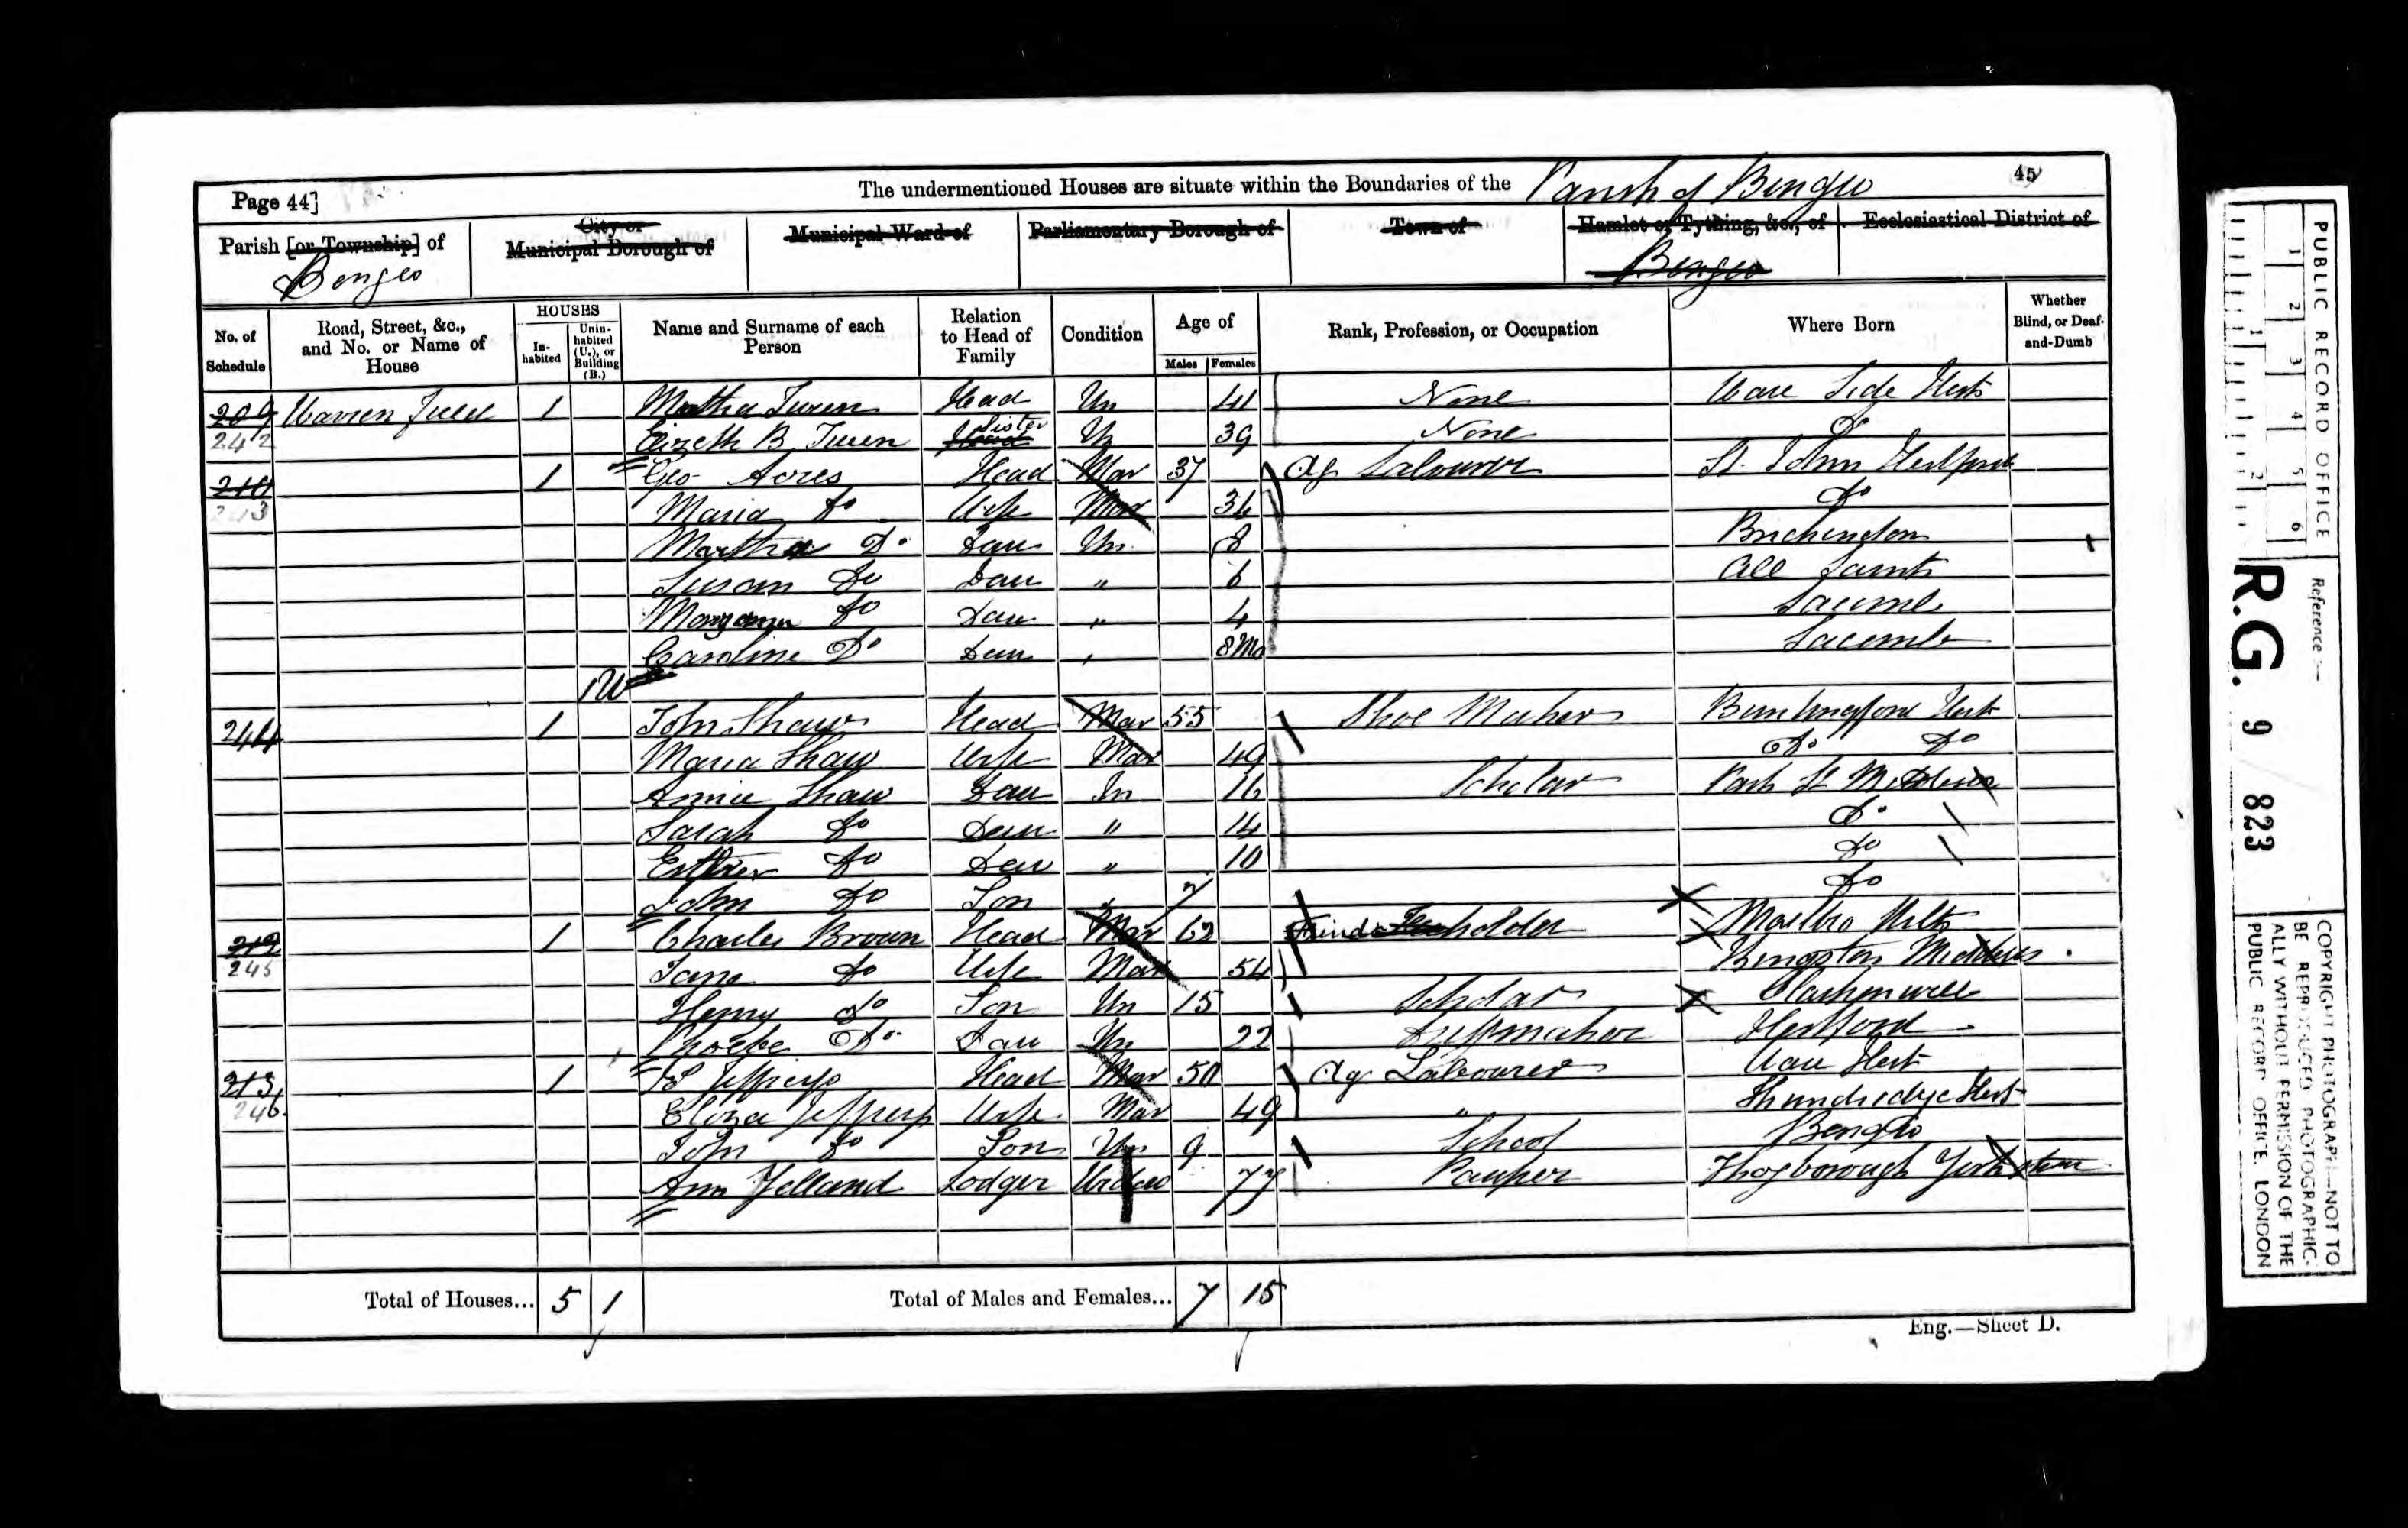 Page 44]
The undermentioned Houses are situate within the Boundaries of the Parish of Bengeo
45
Parish [or Township] of
Bengeo
City or
Municipal Borough of
Municipal Ward of
Parliamentary Borough of
Town of
Hamlet or Tything, &c., of
Bengeo
Ecclesiastical District of
No. of Schedule
Road, Street, &c., and No. or Name of House
HOUSES
In-habited
Unin-habited (U.), or Building (B.)
Name and Surname of each Person
Relation to Head of Family
Condition
Age of
Males Females
Rank, Profession, or Occupation
Where Born
Whether Blind, or Deaf-and-Dumb
209 Warren Field 1 Martha Head Un 41 None Ware Side Herts
242 Elizth B. Head Sister Un 39 None Do
210 1 Geo Acres Head Mar 37 Ag Labourer St. John Hertford
243 Maria Do Wife Mar 34 Do
Martha Do Dau Un 8 Brickendon
Susan Do Dau " 6 All Saints
Maryann Do Dau " 4 Sacombe
Caroline Do Dau " 8 Mo Sacombe
1U
244 1 John Shaw Head Mar 55 Shoe Maker Buntingford Herts
Maria Shaw Wife Mar 49 Do Do
Annie Shaw Dau Un 16 Scholar Park St Middlesex
Sarah Do Dau " 14 Do
Esther Do Dau " 10 Do
John Do Son 7 Do
212 1 Charles Brown Head Mar 62 Fundholder Marlbro Wilts
245 Jane Do Wife Mar 54 Middlesex
Henry Do Son Un 15 Scholar Clerkenwell
Phoebe Do Dau Un 22 Hertford
213 1 Jefferys Head Mar 50 Ag Labourer Ware Herts
246 Eliza Jefferys Wife Mar 49 " Thundridge Herts
John Do Son Un 9 School Bengeo
Ann Yelland Lodger Widow 77 Pauper Yorkshire
Total of Houses... 5 1
Total of Males and Females... 7 15
Eng.—Sheet D.
PUBLIC RECORD OFFICE
1 2 3 4 5 6
1 2
Reference :—
R.G. 9 823
COPYRIGHT PHOTOGRAPH—NOT TO
BE REPRODUCED PHOTOGRAPHIC-
ALLY WITHOUT PERMISSION OF THE
PUBLIC RECORD OFFICE, LONDON